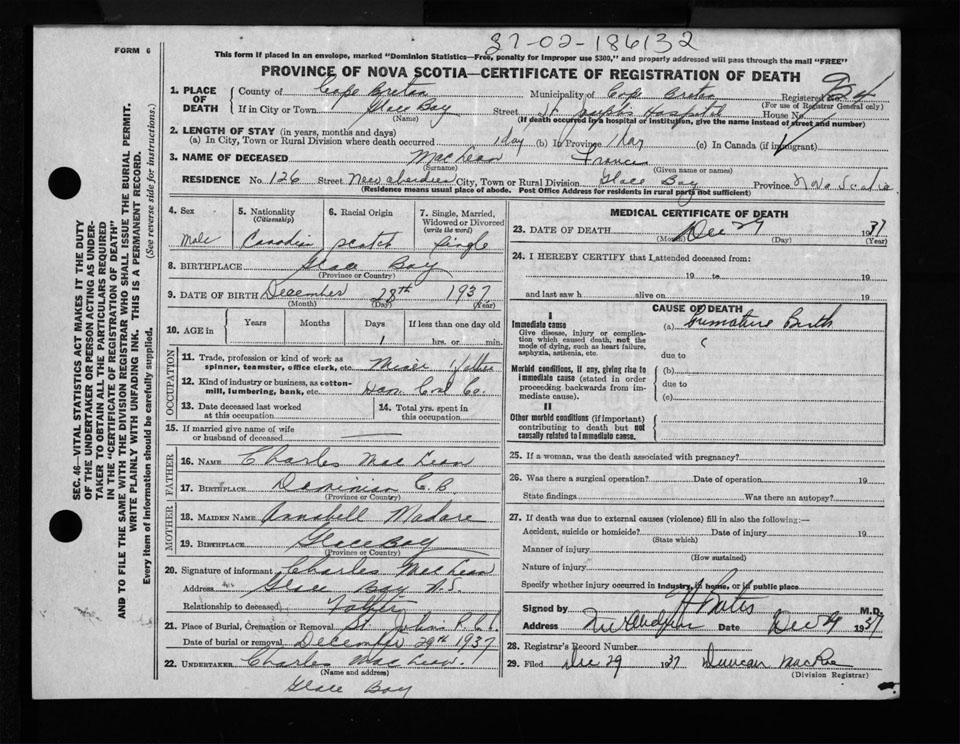 37-02-186132
FORM 6
This form if placed in an envelope, marked "Dominion Statistics—Free, penalty for improper use $300," and properly addressed will pass through the mail "FREE"
PROVINCE OF NOVA SCOTIA—CERTIFICATE OF REGISTRATION OF DEATH
1. PLACE OF DEATH
County of Cape Breton Municipality of Cape Breton Registered No.
(For use of Registrar General only)
If in City or Town Glace Bay Street St Joseph's Hospital House No.
(Name) (If death occurred in a hospital or institution, give the name instead of street and number)
2. LENGTH OF STAY (in years, months and days)
(a) In City, Town or Rural Division where death occurred 1 day (b) In Province 1 day (c) In Canada (if immigrant)
3. NAME OF DECEASED MacLean Francis
(Surname) (Given name or names)
RESIDENCE No. 126 Street New Aberdeen City, Town or Rural Division Glace Bay Province Nova Scotia
(Residence means usual place of abode. Post Office Address for residents in rural parts not sufficient)
4. Sex Male
5. Nationality (Citizenship) Canadian
6. Racial Origin Scotch
7. Single, Married, Widowed or Divorced (write the word) Single
8. BIRTHPLACE Glace Bay
(Province or Country)
9. DATE OF BIRTH December 28th 1937
(Month) (Day) (Year)
10. AGE in Years Months Days If less than one day old
1 hrs. or min.
OCCUPATION
11. Trade, profession or kind of work as spinner, teamster, office clerk, etc. Miner father
12. Kind of industry or business, as cotton-mill, lumbering, bank, etc. Dom Coal Co.
13. Date deceased last worked at this occupation
14. Total yrs. spent in this occupation
15. If married give name of wife or husband of deceased —
FATHER
16. NAME Charles MacLean
17. BIRTHPLACE Dominion C.B
(Province or Country)
MOTHER
18. MAIDEN NAME Annabell Madore
19. BIRTHPLACE Glace Bay
(Province or Country)
20. Signature of informant Charles MacLean
Address Glace Bay N.S.
Relationship to deceased Father
21. Place of Burial, Cremation or Removal St. Johns
Date of burial or removal December 29th 1937
22. UNDERTAKER Charles MacLean.
(Name and address)
Glace Bay
MEDICAL CERTIFICATE OF DEATH
23. DATE OF DEATH Dec 29 1937
(Month) (Day) (Year)
24. I HEREBY CERTIFY that I attended deceased from:
19 to 19
and last saw h alive on 19
CAUSE OF DEATH
I
Immediate cause
Give disease, injury or complication which caused death, not the mode of dying, such as heart failure, asphyxia, asthenia, etc.
(a) Premature Birth
due to
Morbid conditions, if any, giving rise to immediate cause (stated in order proceeding backwards from immediate cause).
(b)
due to
(c)
II
Other morbid conditions (if important) contributing to death but not causally related to immediate cause.
25. If a woman, was the death associated with pregnancy?
26. Was there a surgical operation? Date of operation 19
State findings Was there an autopsy?
27. If death was due to external causes (violence) fill in also the following:—
Accident, suicide or homicide? Date of injury 19
(State which)
Manner of injury
(How sustained)
Nature of injury
Specify whether injury occurred in industry, in home, or in public place
Signed by M.D.
Address Date Dec 29 1937
28. Registrar's Record Number
29. Filed Dec 29 1937 Duncan MacRae
(Division Registrar)
SEC. 46—VITAL STATISTICS ACT MAKES IT THE DUTY
OF THE UNDERTAKER OR PERSON ACTING AS UNDER-
TAKER TO OBTAIN ALL THE PARTICULARS REQUIRED
IN THE "CERTIFICATE OF REGISTRATION OF DEATH"
AND TO FILE THE SAME WITH THE DIVISION REGISTRAR WHO SHALL ISSUE THE BURIAL PERMIT.
WRITE PLAINLY WITH UNFADING INK. THIS IS A PERMANENT RECORD.
Every item of information should be carefully supplied. (See reverse side for instructions.)